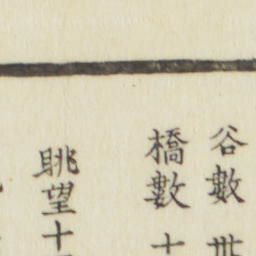 谷數卅
橋數十
眺望十